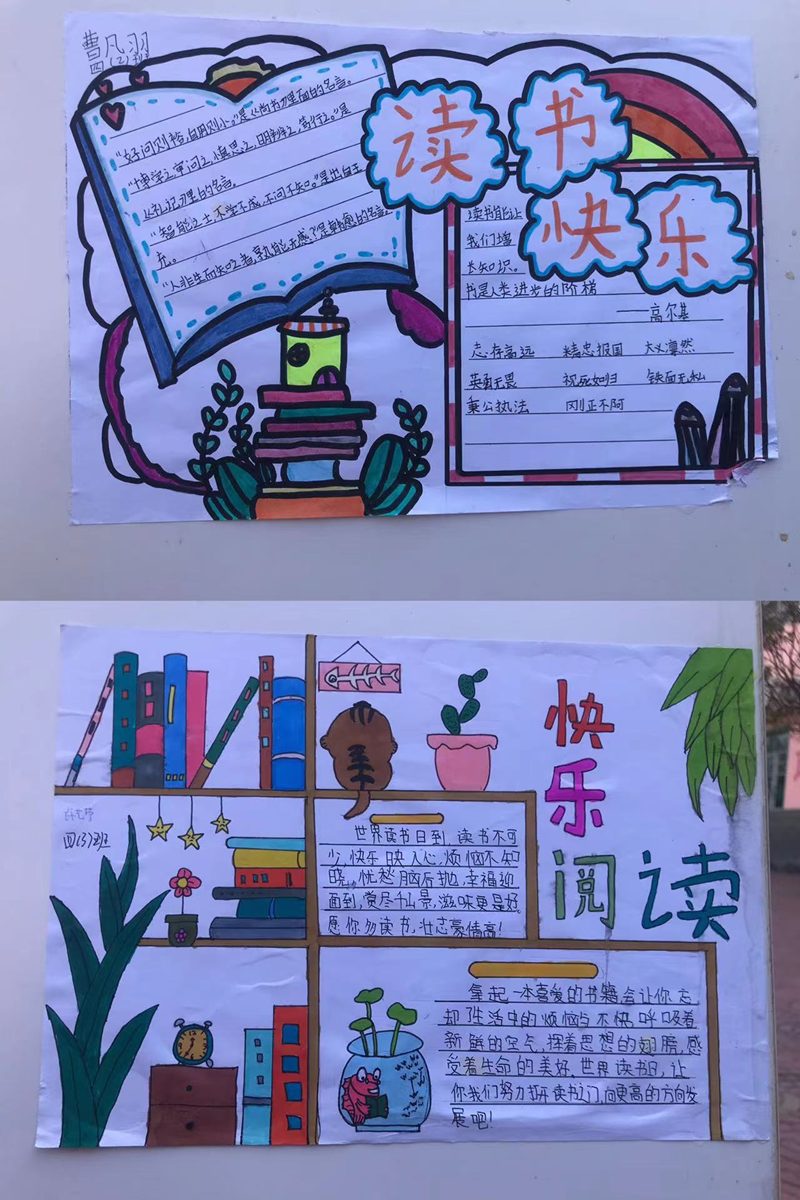 曹凡羽
四(2)班
"好问则裕,自用则小。"是从尚书里面的名言。
"博学之,审问之,慎思之,明辨之,笃行之。"是
从礼记里的名言。
"智能之士,不学不成,不问不知。"是出自王
充。
"人非生而知之者,孰能无惑?"是韩愈的名言。
读书
快乐
读书能让
我们增
长知识。
书是人类进步的阶梯
——高尔基
志存高远 精忠报国 大义凛然
英勇无畏 视死如归 铁面无私
秉公执法 刚正不阿
快
乐
阅读
四(3)班
世界读书日到,读书不可
少,快乐映人心,烦恼不知
晓。忧愁脑后抛,幸福迎
面到,赏尽千山景,滋味更最好
愿你勿读书,壮志豪情高!
拿起一本喜爱的书籍会让你忘
却生活中的烦恼与不快,呼吸着
新鲜的空气,挥着思想的翅膀,感
受着生命的美好。世界读书日,让
你我们努力打开读书之门,向更高的方向发
展吧!